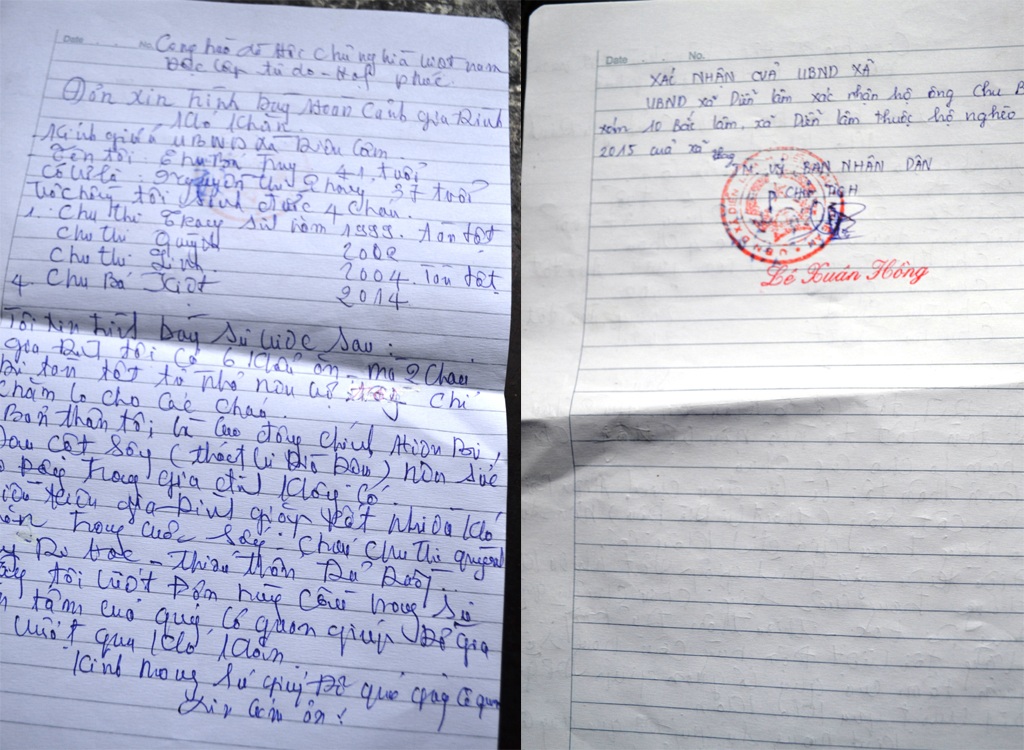 Date No. Cộng hào dã Hôc chủ nghĩa việt nam
Độc lập tự do - Hạh phúc.
Đơn xin trình bày Hoàn Cảnh gia đình
Khó Khăn.
Kính gửi: UBND xã Diễn Lâm.
Tên tôi: Chu Bá Huy 41 tuổi
Có vợ là: Nguyễn thị 37 tuổi
Vợ chồng tôi sinh được 4 cháu.
1. Chu thị Trang Sinh năm 1999. Tàn tật
Chu thị Quỳnh 2002
Chu thị Linh 2004 Tàn tật
4. Chu Bá Kiệt 2014
Tôi xin trình bày sự việc sau:
gia đình tôi có 6 khẩu ăn - mà 2 cháu
Bị tàn tật từ nhỏ nên vợ tôi chỉ
chăm lo cho các cháu.
Bản thân tôi, là lao động chính Hiện Bị,
Đau cột sống (thoát vị đĩa đệm) nên sức
trong gia đình không có.
gia đình gặp rất nhiều khó
trong cuộc sống. Cháu Chu thị quỳnh
Đi Học - thiếu thốn
tôi viết Đơn này cầu mong sự
tâm của quý cơ quan giúp Đỡ gia
vượt qua khó khăn.
Kính mong sự giúp Đỡ quý cơ quan
Xin cảm ơn!
Date No.
XÁC NHẬN CUẢ UBND XÃ
UBND xã Diễn lâm xác nhận hộ ông Chu B
xóm 10 Bắc lâm, xã Diễn lâm thuộc hộ nghèo
2015 cuả xã
TM. UỶ BAN NHÂN DÂN
CHỦ TỊCH
Lê Xuân Hồng